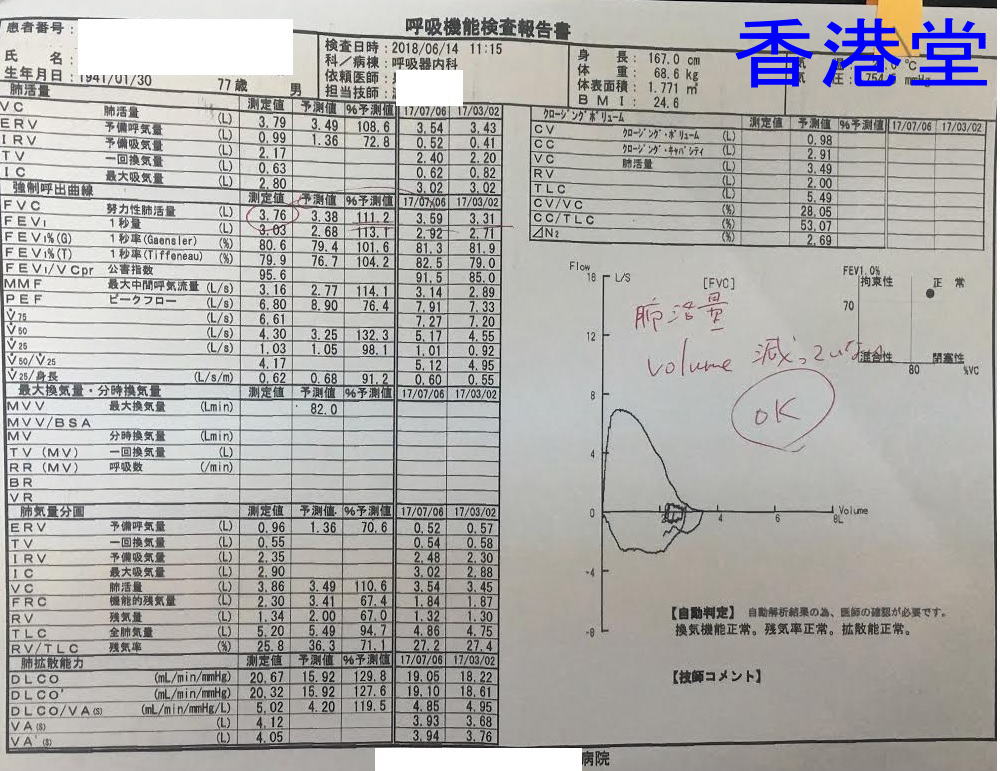 香港堂
呼吸機能検査報告書
患者番号:
氏 名:
生年月日:1941/01/30 77歳 男
検査日時:2018/06/14 11:15
科/病棟:呼吸器内科
依頼医師:
担当技師:
身 長:167.0 cm
体 重:68.6 kg
体表面積:1.771 ㎡
BMI:24.6
℃
圧:754. mmHg
肺活量 測定値 予測値 %予測値 17/07/06 17/03/02
VC 肺活量 (L) 3.79 3.49 108.6 3.54 3.43
ERV 予備呼気量 (L) 0.99 1.36 72.8 0.52 0.41
IRV 予備吸気量 (L) 2.17 2.40 2.20
TV 一回換気量 (L) 0.63 0.62 0.82
IC 最大吸気量 (L) 2.80 3.02 3.02
強制呼出曲線 測定値 予測値 %予測値 17/07/06 17/03/02
FVC 努力性肺活量 (L) 3.76 3.38 111.2 3.59 3.31
FEV₁ 1秒量 (L) 3.03 2.68 113.1 2.92 2.71
FEV₁%(G) 1秒率(Gaensler) (%) 80.6 79.4 101.6 81.3 81.9
FEV₁%(T) 1秒率(Tiffeneau) (%) 79.9 76.7 104.2 82.5 79.0
FEV₁/VCpr 公害指数 95.6 91.5 85.0
MMF 最大中間呼気流量 (L/s) 3.16 2.77 114.1 3.14 2.89
PEF ピークフロー (L/s) 6.80 8.90 76.4 7.91 7.33
V̇₇₅ (L/s) 6.61 7.27 7.20
V̇₅₀ (L/s) 4.30 3.25 132.3 5.17 4.55
V̇₂₅ (L/s) 1.03 1.05 98.1 1.01 0.92
V̇₅₀/V̇₂₅ 4.17 5.12 4.95
V̇₂₅/身長 (L/s/m) 0.62 0.68 91.2 0.60 0.55
最大換気量・分時換気量 測定値 予測値 %予測値 17/07/06 17/03/02
MVV 最大換気量 (Lmin) 82.0
MVV/BSA
MV 分時換気量 (Lmin)
TV (MV) 一回換気量 (L)
RR (MV) 呼吸数 (/min)
BR
VR
肺気量分画 測定値 予測値 %予測値 17/07/06 17/03/02
ERV 予備呼気量 (L) 0.96 1.36 70.6 0.52 0.57
TV 一回換気量 (L) 0.55 0.54 0.58
IRV 予備吸気量 (L) 2.35 2.48 2.30
IC 最大吸気量 (L) 2.90 3.02 2.88
VC 肺活量 (L) 3.86 3.49 110.6 3.54 3.45
FRC 機能的残気量 (L) 2.30 3.41 67.4 1.84 1.87
RV 残気量 (L) 1.34 2.00 67.0 1.32 1.30
TLC 全肺気量 (L) 5.20 5.49 94.7 4.86 4.75
RV/TLC 残気率 (%) 25.8 36.3 71.1 27.2 27.4
肺拡散能力 測定値 予測値 %予測値 17/07/06 17/03/02
DLCO (mL/min/mmHg) 20.67 15.92 129.8 19.05 18.22
DLCO' (mL/min/mmHg) 20.32 15.92 127.6 19.10 18.61
DLCO/VA(S) (mL/min/mmHg/L) 5.02 4.20 119.5 4.85 4.95
VA(S) (L) 4.12 3.93 3.68
VA'(S) (L) 4.05 3.94 3.76
クロージングボリューム 測定値 予測値 %予測値 17/07/06 17/03/02
CV クロージング・ボリューム (L) 0.98
CC クロージング・キャパシティ (L) 2.91
VC 肺活量 (L) 3.49
RV (L) 2.00
TLC (L) 5.49
CV/VC (%) 28.05
CC/TLC (%) 53.07
⊿N₂ (%) 2.69
Flow
18 L/S
[FVC]
12
8
4
0
-4
-8
2 4 6 8L Volume
FEV1.0%
拘束性 正 常
70
混合性 閉塞性
80 %VC
肺活量
volume 減っていません
OK
【自動判定】 自動解析結果の為、医師の確認が必要です。
換気機能正常。残気率正常。拡散能正常。
【技師コメント】
病院